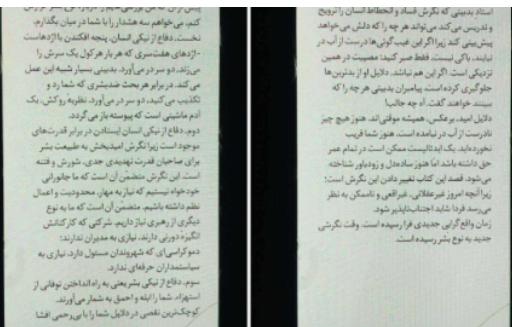 کنم، می‌خواهم سه هشدار را با شما در میان بگذارم.
نخست، دفاع از نیکی انسان، پنجه افکندن با اژدهاست
- اژدهای هفت‌سری که هر بار هرکول یک سرش را
می‌زند، دو سر در می‌آورد. بدبینی بسیار شبیه این عمل
می‌کند. در برابر هر بحث ضدبشری که شما رد و
تکذیب می‌کنید، دو سر در می‌آورد. نظریه روکش، یک
آدم ماشینی است که پیوسته باز می‌گردد.
دوم، دفاع از نیکی انسان ایستادن در برابر قدرت‌های
موجود است زیرا نگرش امیدبخش به طبیعت بشر
برای صاحبان قدرت تهدیدی جدی، شورش و فتنه
است. این نگرش متضمن آن است که ما جانورانی
خودخواه نیستیم که نیاز به مهار، محدودیت و اعمال
نظم داشته باشیم. متضمن آن است که ما به نوع
دیگری از رهبری نیاز داریم. شرکتی که کارکنانش
انگیزه درونی دارند، نیازی به مدیران ندارند؛
دموکراسی‌ای که شهروندان مسئول دارد، نیازی به
سیاستمداران حرفه‌ای ندارد.
سوم، دفاع از نیکی بشر یعنی به راه انداختن توفانی از
استهزاء. شما را ابله و احمق به شمار می‌آورند.
کوچک‌ترین نقصی در دلایل شما را با بی‌رحمی افشا
استاد بدبینی که نگرش فساد و انحطاط انسان را ترویج
و تدریس می‌کند می‌تواند هر چه را که دلش می‌خواهد
پیش‌بینی کند زیرا اگر این غیب‌گویی‌ها درست از آب در
نیایند، باکی نیست. فقط صبر کنید: مصیبت در همین
نزدیکی است. اگر این هم نباشد، دلایل او از بدترین‌ها
جلوگیری کرده است. پیامبران بدبیتی هر چه را که
ببینند خواهند گفت. آه چه جالب!
دلایل امید، برعکس، همیشه موقتی‌اند. هنوز هیچ چیز
نادرست از آب در نیامده است. هنوز شما فریب
نخورده‌اید. یک ایدئالیست ممکن است در تمام عمر
حق داشته باشد اما هنوز ساده‌دل و زودباور شناخته
می‌شود. قصد این کتاب تغییر دادن این نگرش است؛
زیرا آنچه امروز غیرعقلانی، غیرواقعی و ناممکن به نظر
می‌رسد فردا شاید اجتناب‌ناپذیر شود.
زمان واقع‌گرایی جدیدی فرا رسیده است. وقت نگرشی
جدید به نوع بشر رسیده است.